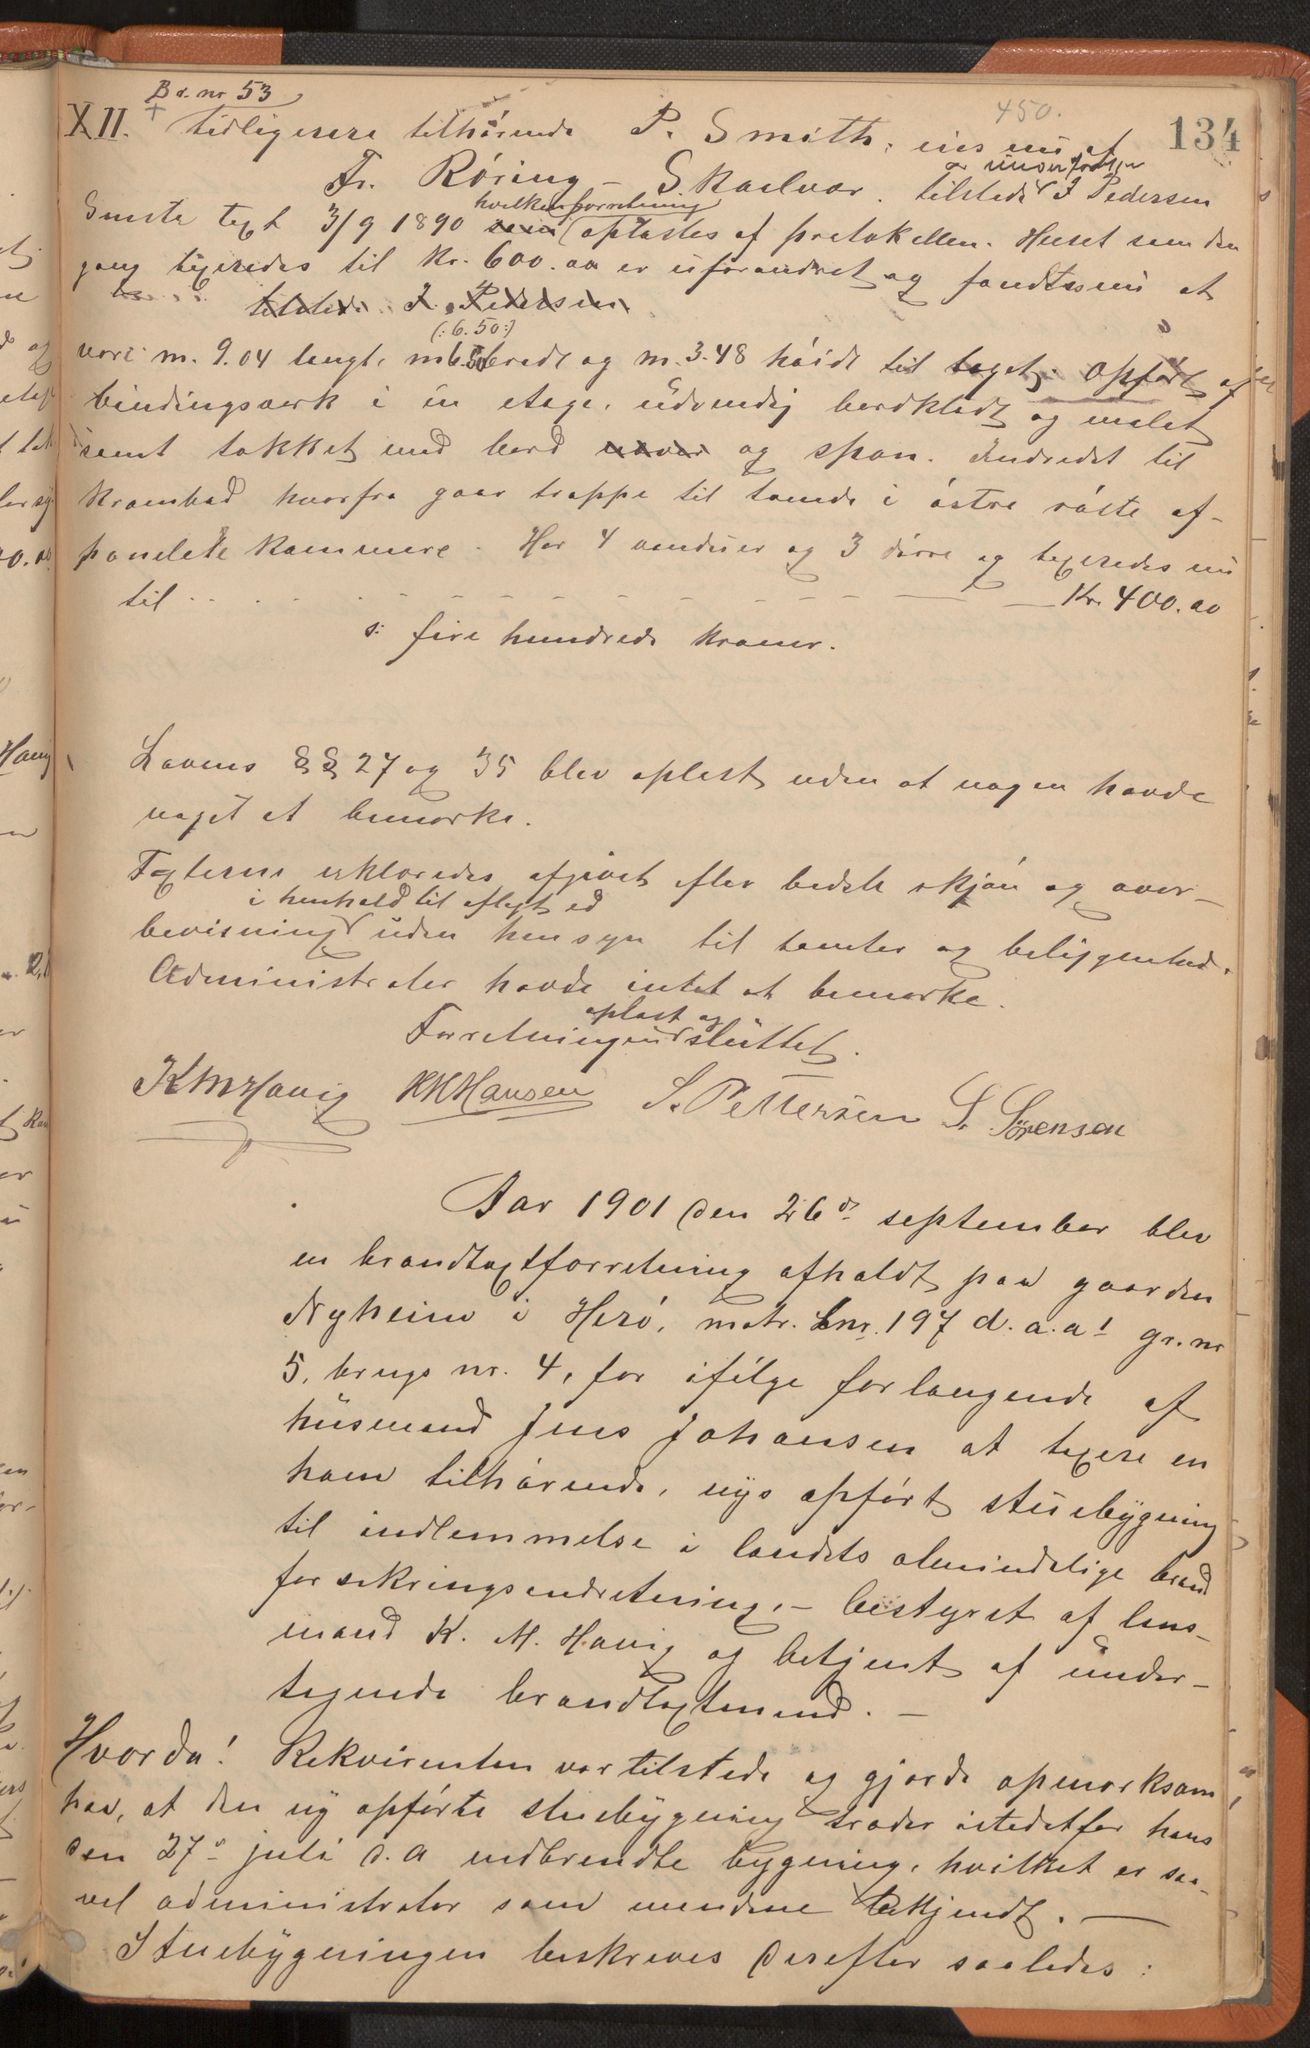 Bd. nr 53
450.
134
XII. + tidligerere tilhørende P. Smith, eies nu af
Fr. Røring – Skaalvær. tilstede J Pedersen
Smste taxt 3/9 1890 hvilken forretning oplæstes af protokollen. Huset som den
gang taxeredes til Kr. 600.00 er uforandret og fandtes nu at
tilstede J. Pedersen
(:6.50:)
være m. 9.04 langt, m 6.50 bredt og m. 3.48 høide til taget. Opført af
bindingsverk i en etage, udvendig bordklædt og malet
samt tækket med bord og spon. Indredet til
krambod hvorfra gaar trappe til tvende i østre røste af-
panelete kammere. Har 4 vinduer og 3 dørre og taxeredes nu
til . . . . . . . Kr. 400.00
s: fire hundrede kroner.
Lovens §§ 27 og 35 blev oplæst uden at nogen havde
noget at bemærke.
Taxterne erklæredes afgivet efter bedste skjøn og over-
i henhold til aflagt ed
bevisning uden hensyn til tomter og beliggenhed.
Administrator havde intet at bemærke.
oplæst og
Forretningen sluttet.
K M Havig HKHansen S. Pettersen S. Sørensen
Aar 1901 den 26de september blev
en brandtaxtforretning afholdt paa gaarden
Nyheim i Herø, matr. Lnr. 197 d. a. a1 gr. nr
5, brugs nr. 4, for ifølge forlangende af
husmand Jens Johansen at taxere en
ham tilhørende, nys opført stuebygning
til indlemmelse i landets almindelige brand
forsikringsindretning, – bestyret af lens-
mand K. M. Havig og betjent af under-
tegnede brandtaxtmænd. –
Hvorda! Rekvirenten var tilstede og gjorde opmærksom
paa, at den ny opførte stuebygning træder istedetfor hans
den 27de juli d. a nedbrendte bygning, hvilket er saa-
vel administrator som mændene bekjendt. —
Stuebygningen beskrives derefter saaledes: